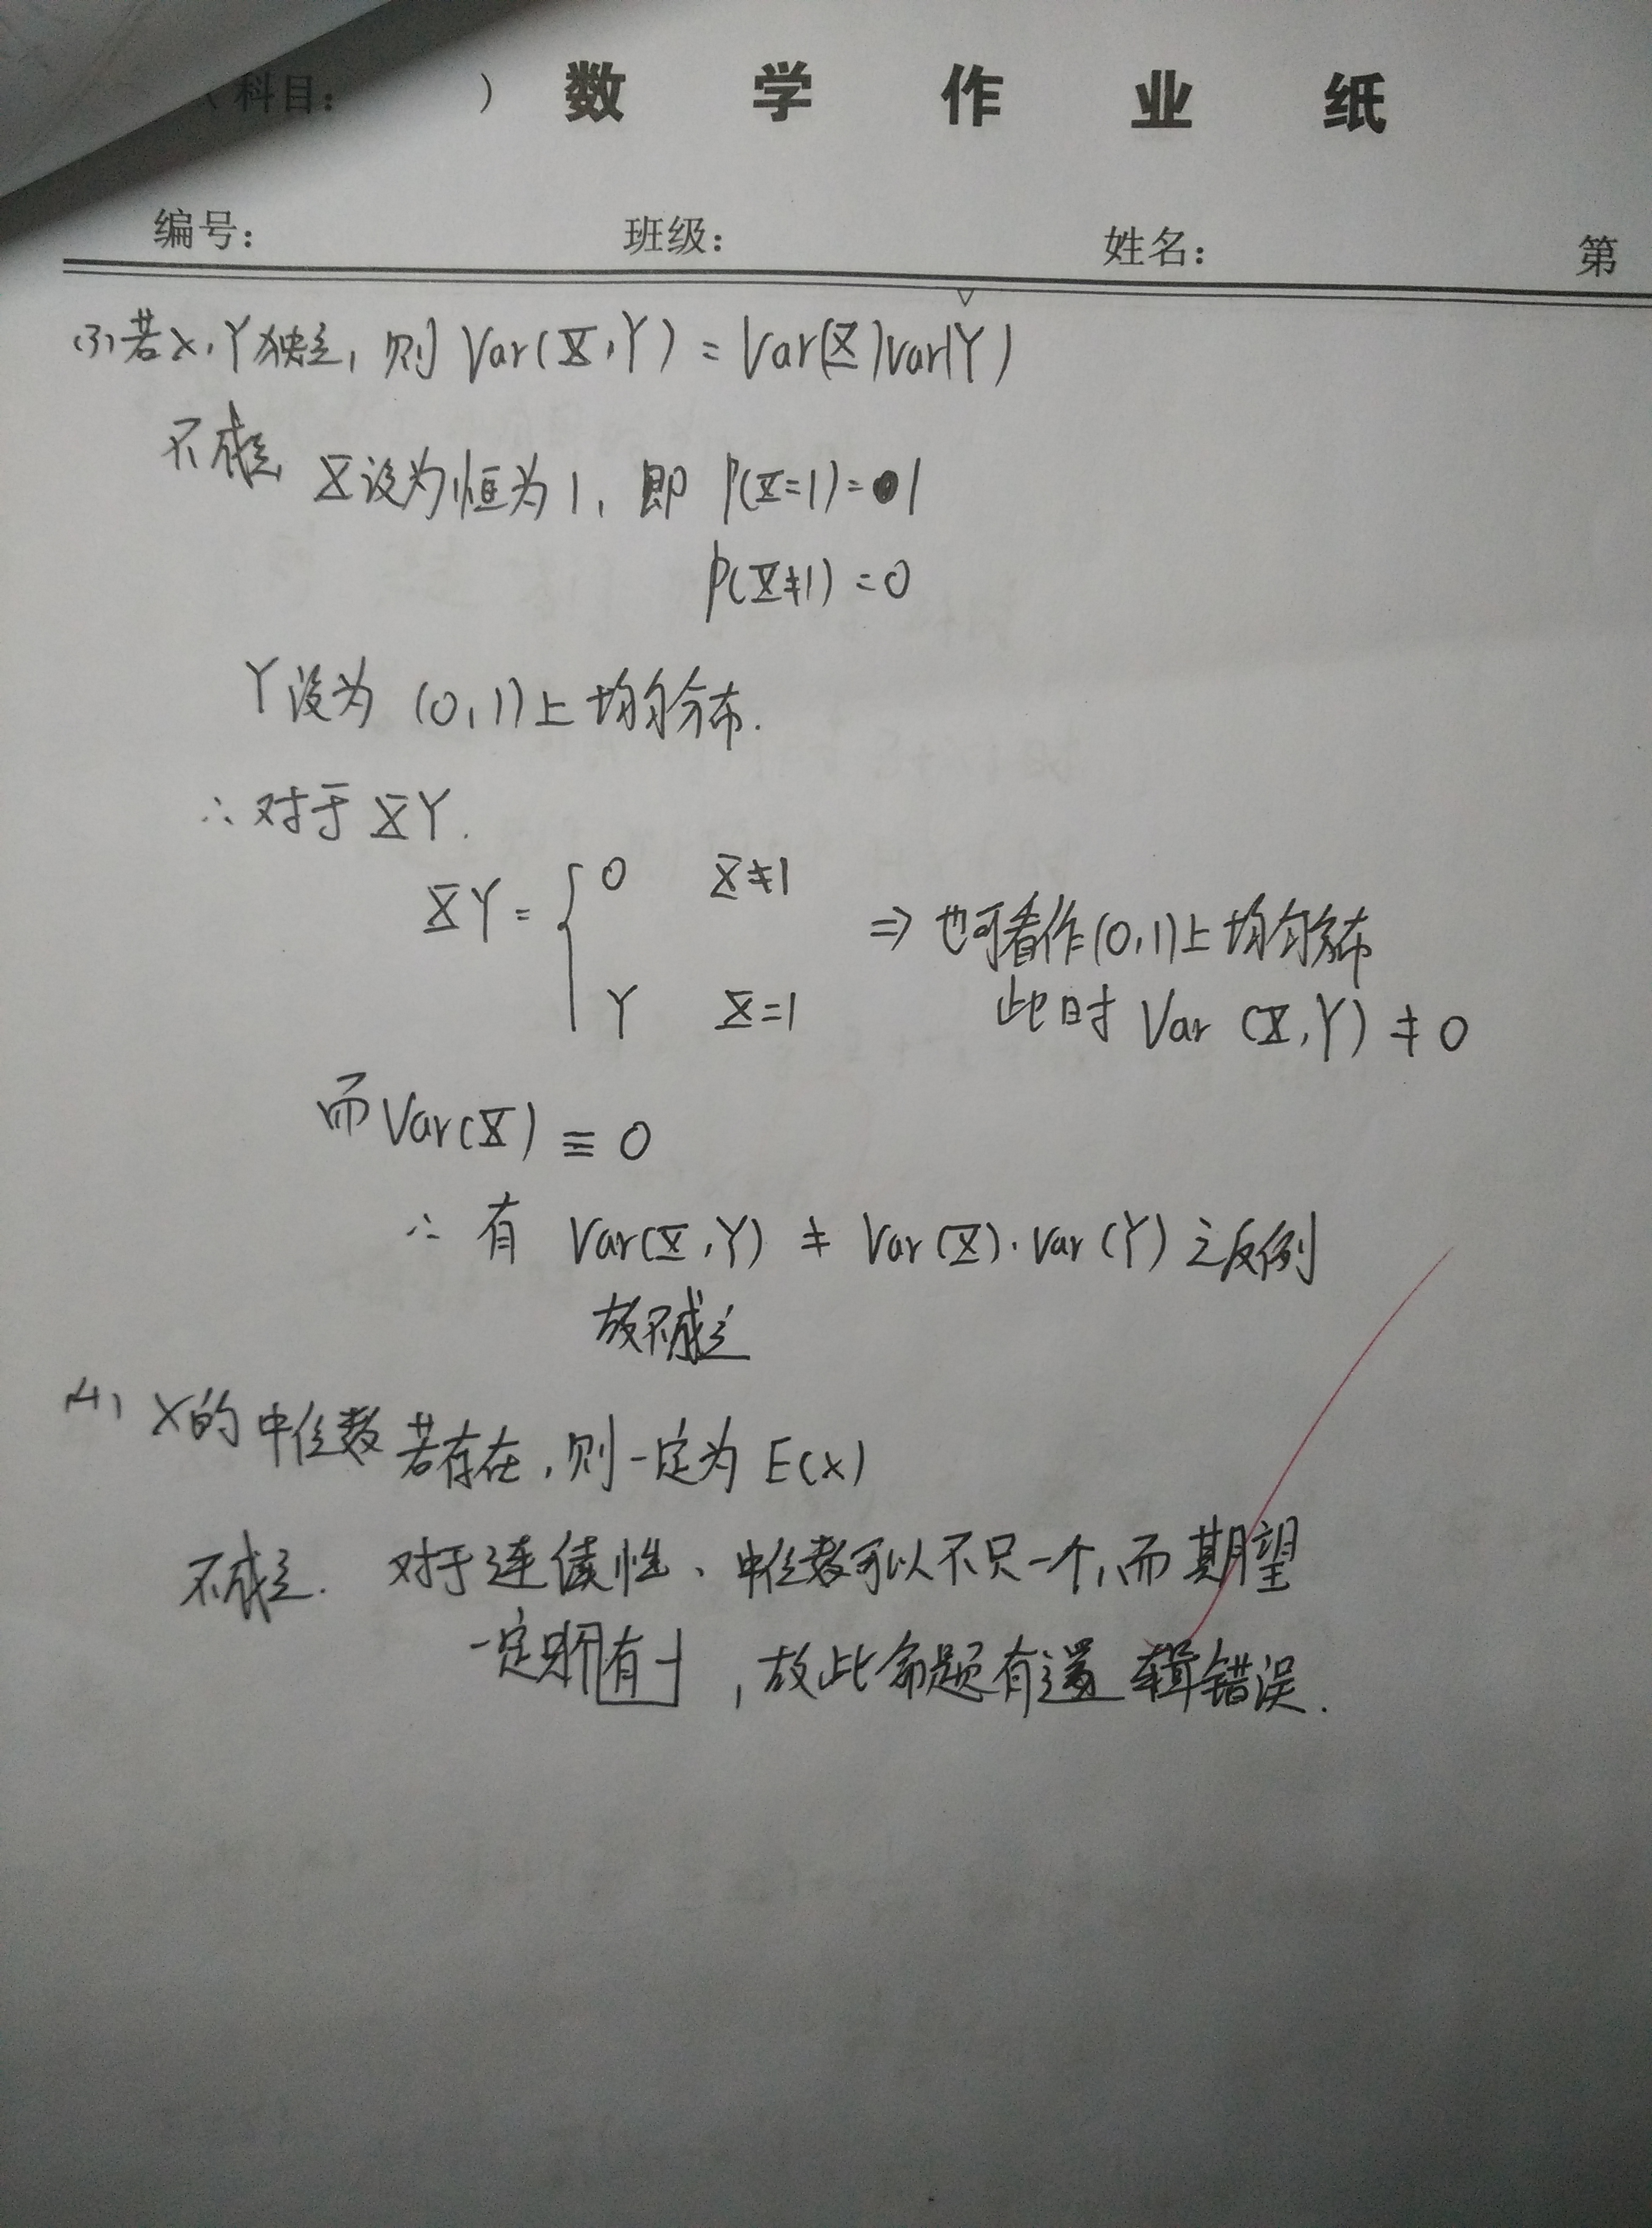 （科目： ） 数 学 作 业 纸
编号： 班级： 姓名： 第
(3) 若X,Y独立, 则 Var(X,Y) = Var(X)Var(Y)
不成立 X设为恒为1, 即 P(X=1)=1
P(X≠1)=0
Y设为 (0,1)上均匀分布.
∴对于XY.
XY = { 0 X≠1
Y X=1
⇒ 也可看作(0,1)上均匀分布
此时 Var (X,Y) ≠ 0
而Var(X) ≡ 0
∴ 有 Var(X,Y) ≠ Var(X)·Var(Y) 之反例
故不成立
(4) X的中位数若存在,则一定为 E(X)
不成立. 对于连续性、中位数可以不只一个,而期望
一定有一个,故此命题有逻辑错误.